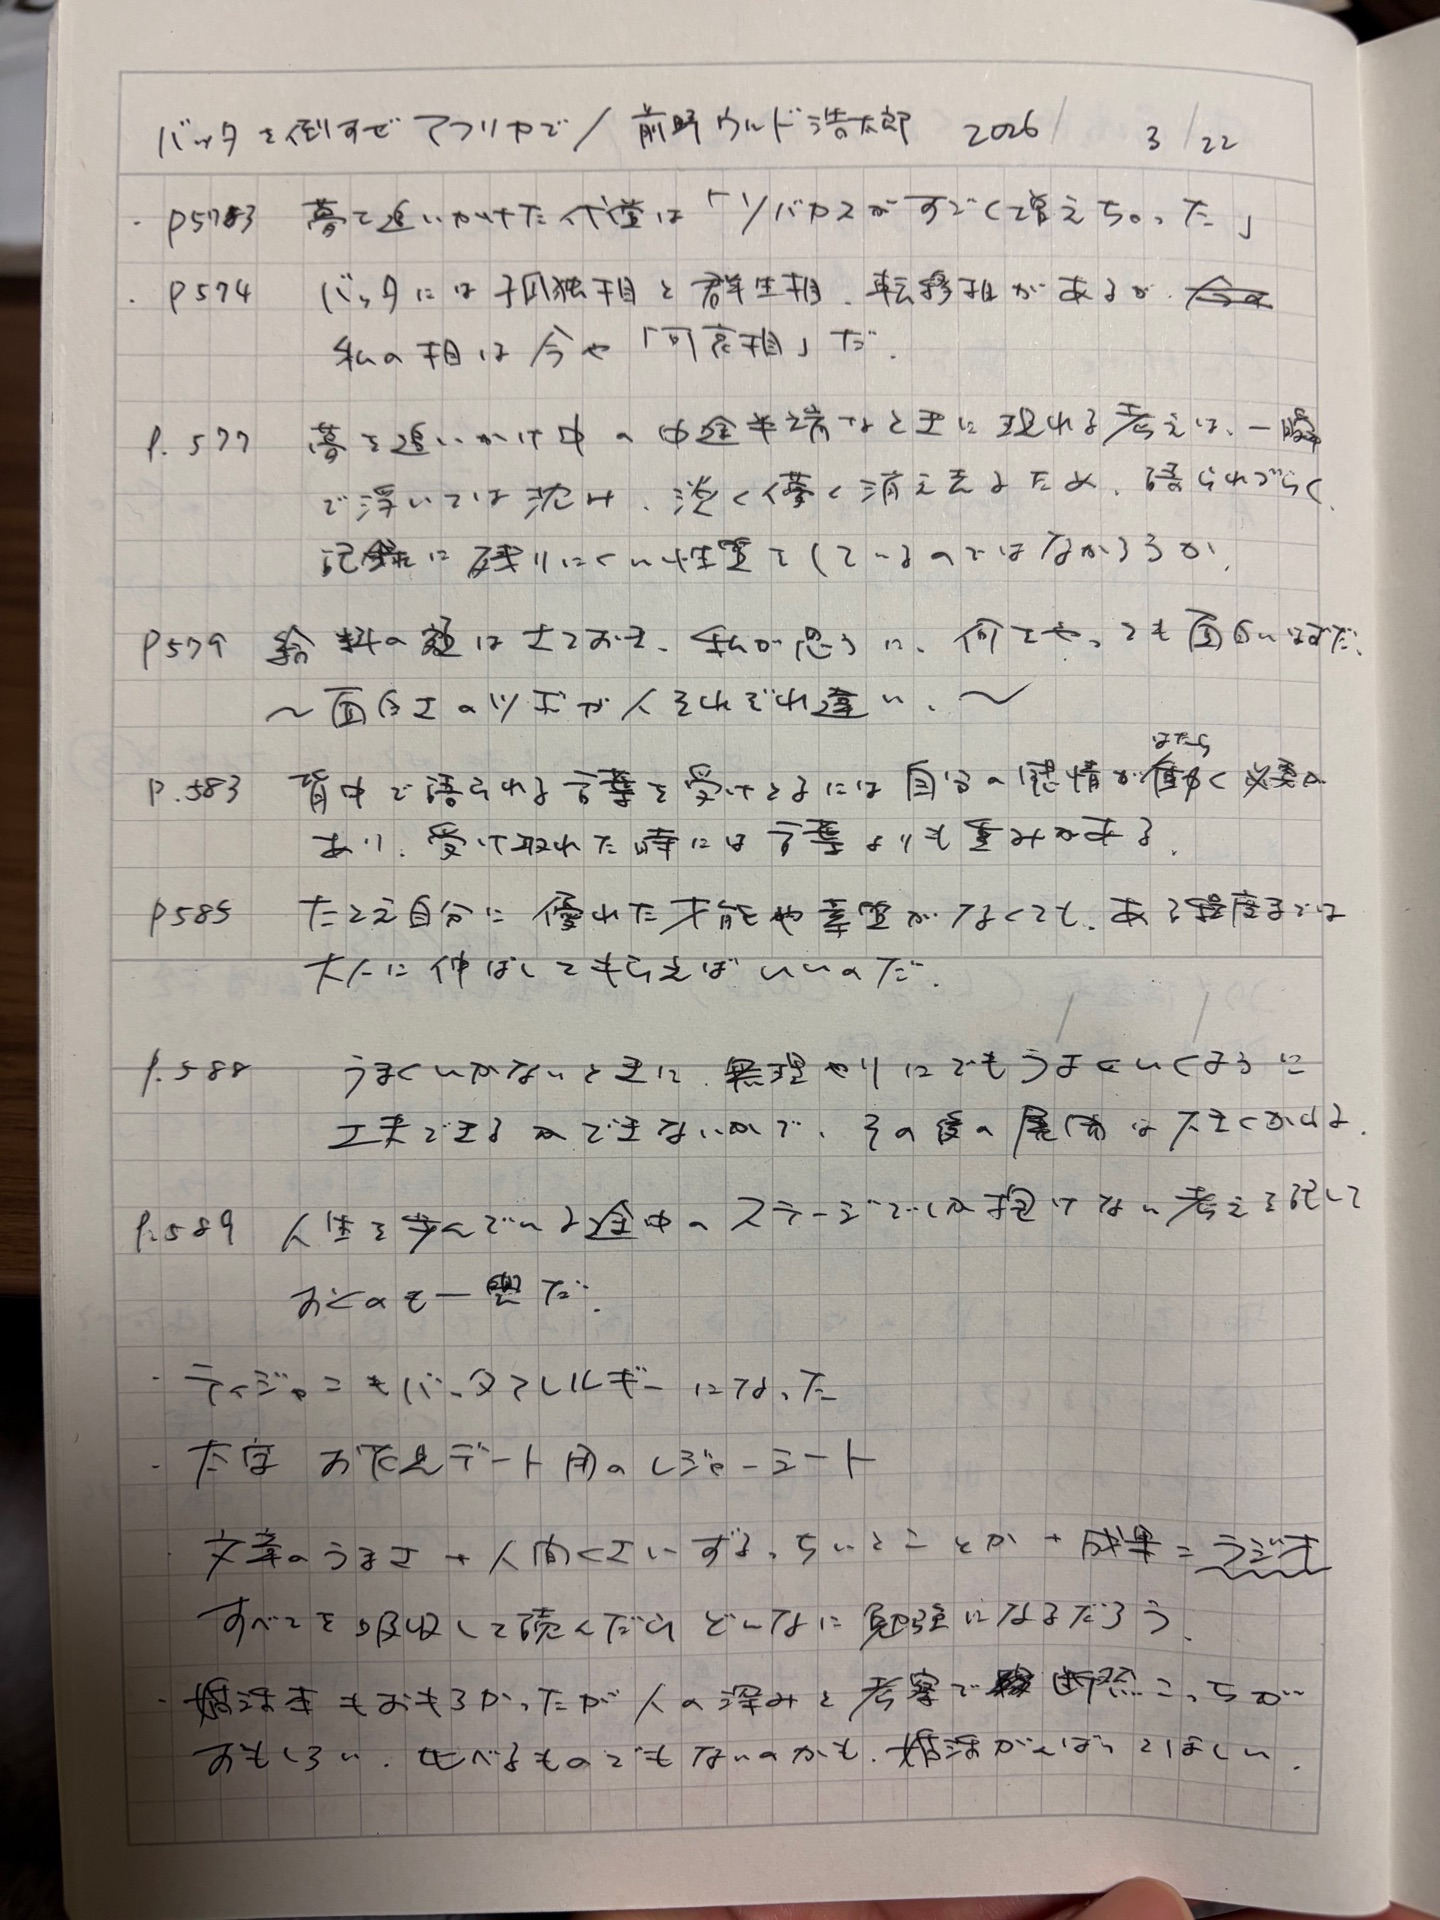 バッタを倒すぜアフリカで/前野ウルド浩太郎 2026/ 3/22
・P573 夢を追いかけた代償は「ソバカスがすごく増えちゃった」
・P574 バッタには孤独相と群生相、転移相があるが、
私の相は今や「可哀相」だ.
P.577 夢を追いかけ中の中途半端なときに現れる考えは、一瞬
で浮いては沈み、淡く儚く消え去るため、語られづらく、
記録に残りにくい性質をしているのではなかろうか.
P579 給料の額はさておき、私が思うに、何をやっても面白いはずだ、
〜面白さのツボが人それぞれ違い、〜
P.583 背中で語られる言葉を受けとるには自分の感情が働く必要が
はたら
あり、受け取れた時には言葉よりも重みがある.
P585 たとえ自分に優れた才能や素質がなくても、ある程度までは
大人に伸ばしてもらえばいいのだ.
P.588 うまくいかないときに、無理やりにでもうまくいくように
工夫できるかできないかで、その後の展開は大きくかわる.
P.589 人生を歩んでいる途中のステージでしか抱けない考えを記して
おくのも一興だ.
・ティジャニもバッタアレルギーになった
・ただ お花見デート用のレジャーシート
・文章のうまさ+人間くさいずるっちいとことか+成果=ラジオ
すべてを吸収して読んだらどんなに勉強になるだろう.
・婚活本もおもろかったが人の深みと考察で断然こっちが
おもしろい. 比べるものでもないのかも. 婚活がんばってほしい.